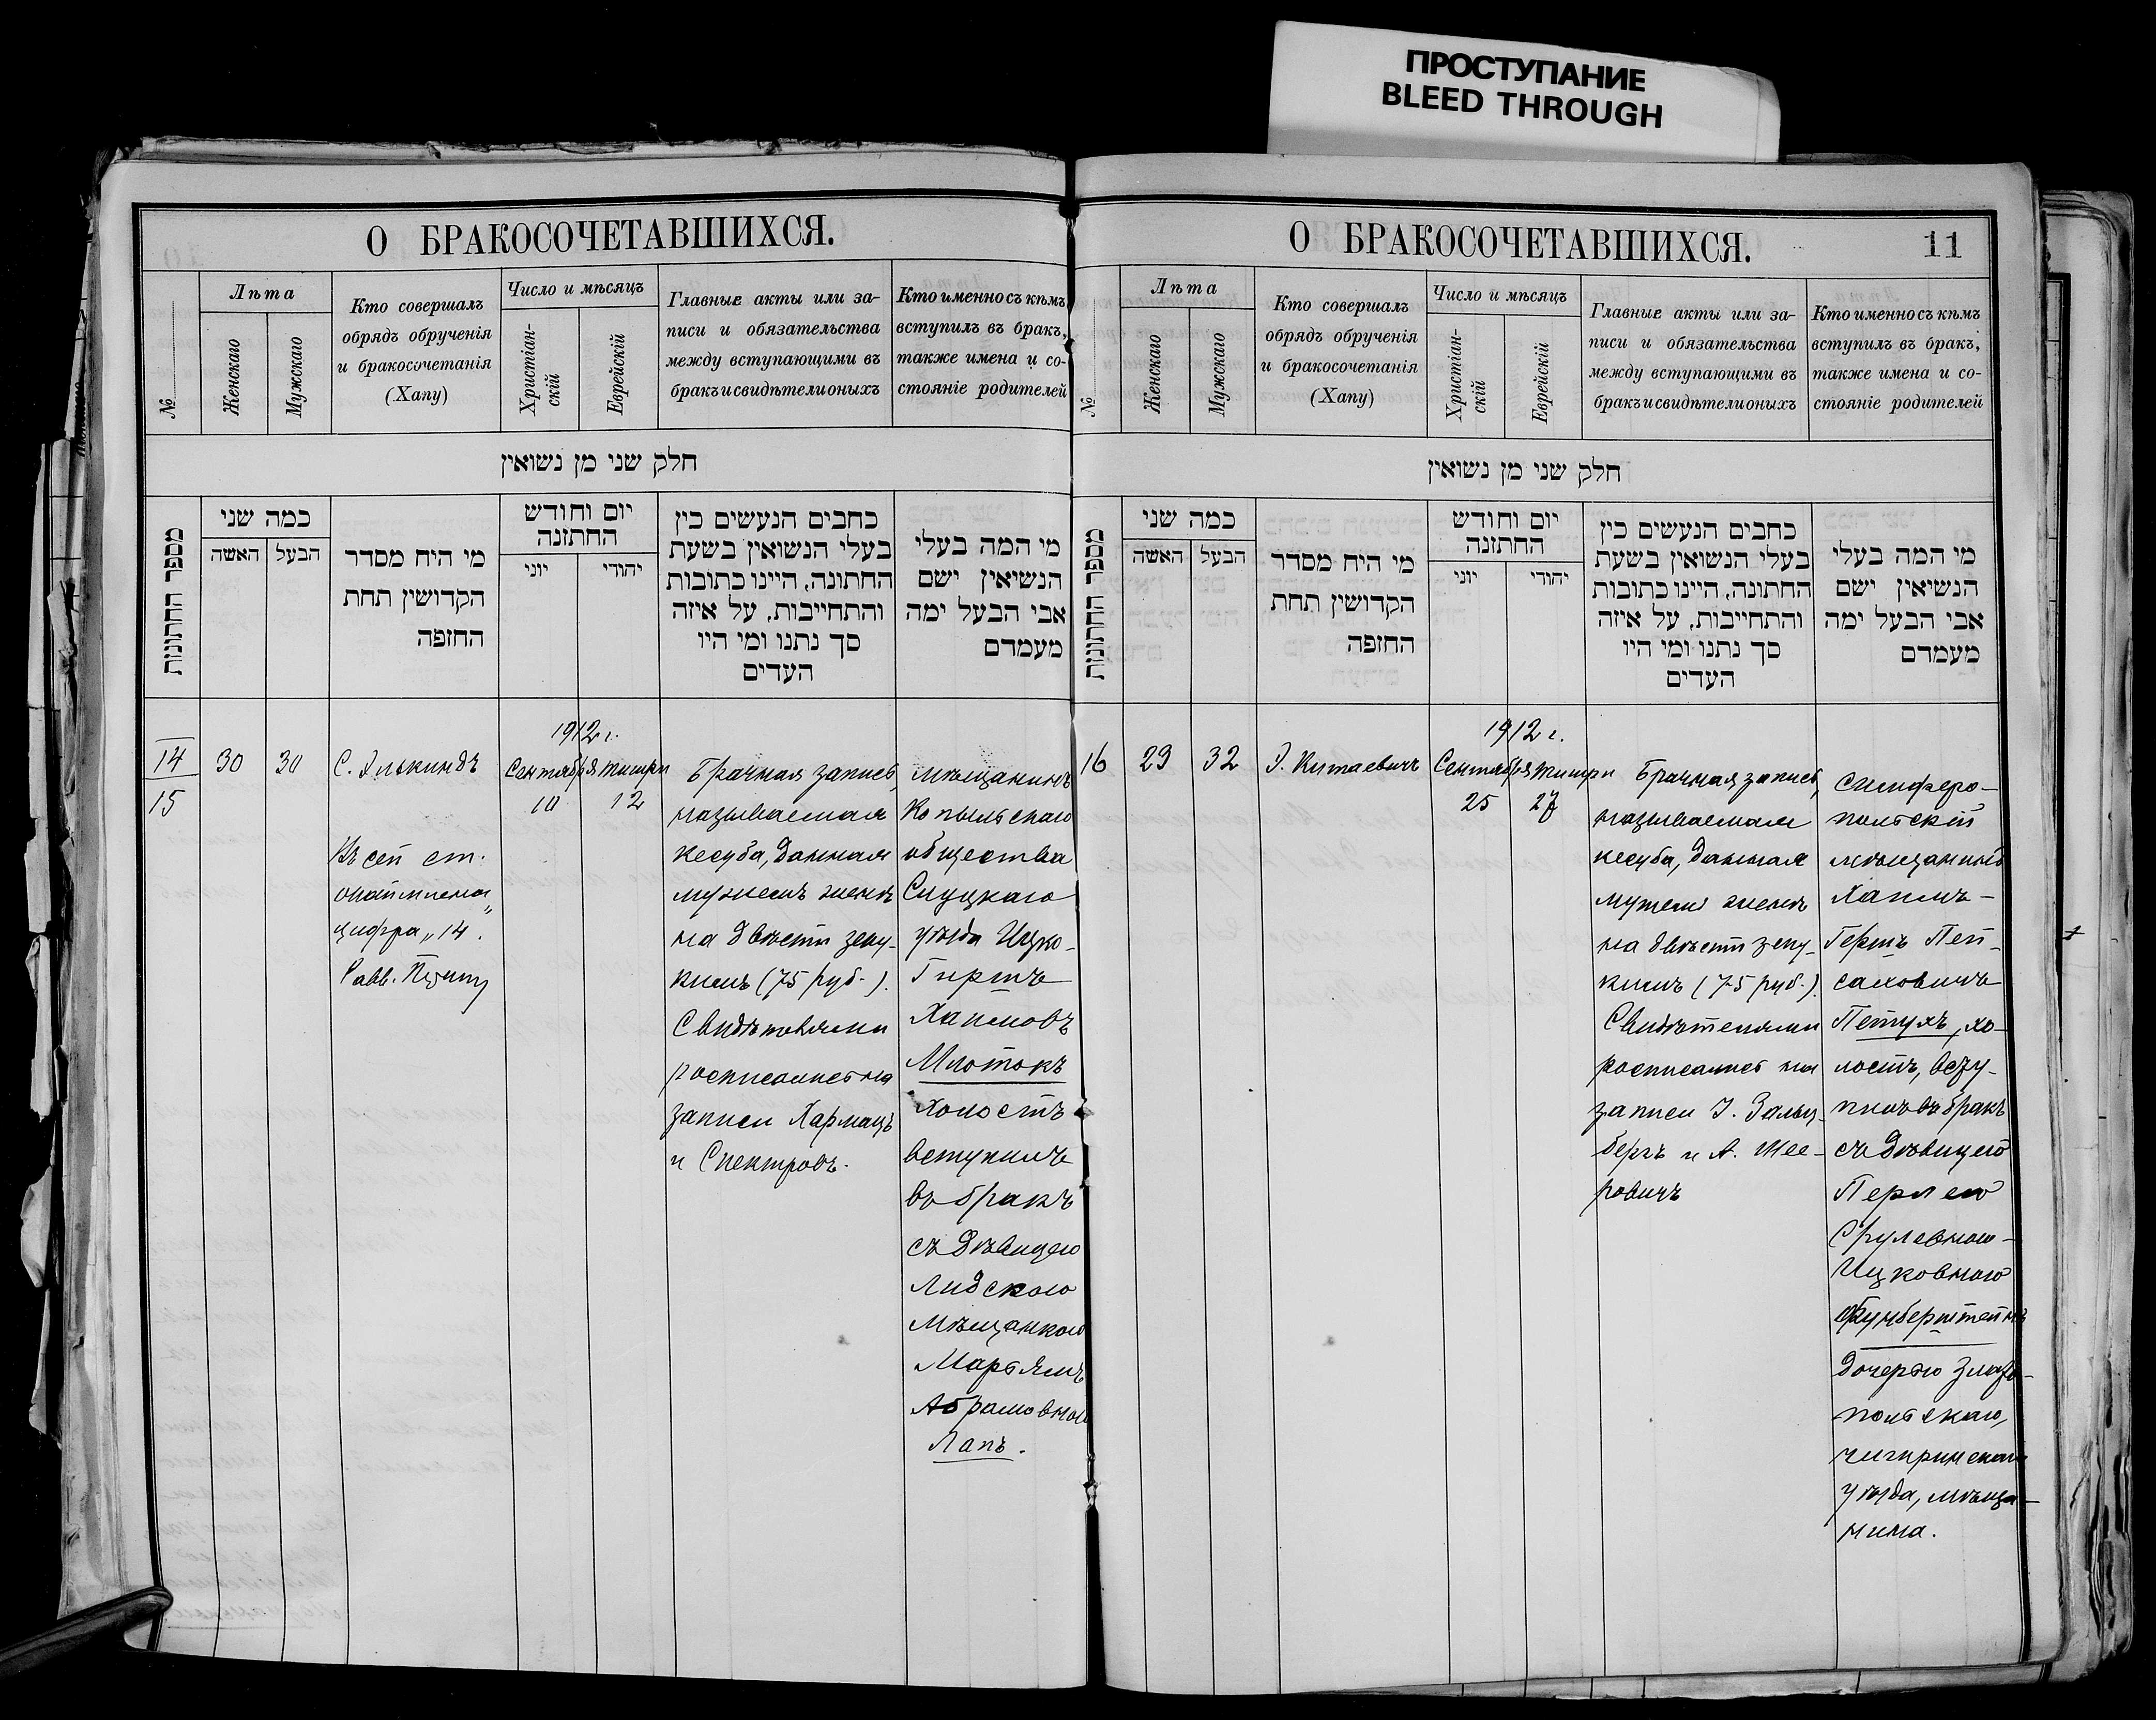 ПРОСТУПАНИЕ
BLEED THROUGH
О БРАКОСОЧЕТАВШИХСЯ.
№
Лѣта
Женскаго
Мужскаго
Кто совершалъ
обрядъ обрученія
и бракосочетанія
(Хапу)
Число и мѣсяцъ
Христіан-
скій
Еврейскій
Главные акты или за-
писи и обязательства
между вступающими въ
бракъ и свидѣтели оныхъ
Кто именно съ кѣмъ
вступилъ въ бракъ,
также имена и со-
стояніе родителей
חלק שני מן נשואין
מספר החתונות
כמה שני
האשה
הבעל
מי היח מסדר
הקדושין תחת
החזפה
יום וחודש
החתזנה
יוני
יהודי
כחבים הנעשים כין
בעלי הנשואין בשעת
החתונה, היינו כתובות
והתחייבות, על איזה
סך נתנו ומי היו
העדים
מי המה בעלי
הנשיאין ישם
אבי הבעל ימה
מעמדם
14
15
30
30
С. Элькиндъ
Въ сей ст.
цифра „14".
Равв.
1912 г.
Сентября
10
Тишри
12
Брачная запись,
называемая
кесуба, данная
мужемъ женѣ
на двѣсти зеку-
кимъ (75 руб.).
Свидѣтелями
росписались на
записи Хармацъ
и Спектровъ.
мѣщанинъ
Копыльскаго
общества
Слуцкаго
уѣзда Ицко-
Гиршъ
Хаимовъ
Млотокъ
холостъ
вступилъ
въ бракъ
съ дѣвицею
Лидскою
мѣщанкою
Марьямъ
Абрамовною
Лапъ.
О БРАКОСОЧЕТАВШИХСЯ.
11
№
Лѣта
Женскаго
Мужскаго
Кто совершалъ
обрядъ обрученія
и бракосочетанія
(Хапу)
Число и мѣсяцъ
Христіан-
скій
Еврейскій
Главные акты или за-
писи и обязательства
между вступающими въ
бракъ и свидѣтели оныхъ
Кто именно съ кѣмъ
вступилъ въ бракъ,
также имена и со-
стояніе родителей
חלק שני מן נשואין
מספר החתונות
כמה שני
האשה
הבעל
מי היח מסדר
הקדושין תחת
החזפה
יום וחודש
החתזנה
יוני
יהודי
כחבים הנעשים כין
בעלי הנשואין בשעת
החתונה, היינו כתובות
והתחייבות, על איזה
סך נתנו ומי היו
העדים
מי המה בעלי
הנשיאין ישם
אבי הבעל ימה
מעמדם
16
29
32
Э. Китаевичъ
1912 г.
Сентября
25
Тишри
27
Брачная запись,
называемая
кесуба, данная
мужемъ женѣ
на двѣсти зеку-
кимъ (75 руб.).
Свидѣтелями
росписались на
записи І. Зальц-
бергъ и А. Мее-
ровичъ
симферо-
польскій
мѣщанинъ
Хаимъ-
Гершъ Пей-
саховичъ
Петухъ, хо-
лостъ, всту-
пилъ въ бракъ
съ дѣвицею
Перлею
Срулевною-
Ицковною
дочерью злато-
польскаго,
чигиринскаго
уѣзда, мѣща-
нина.